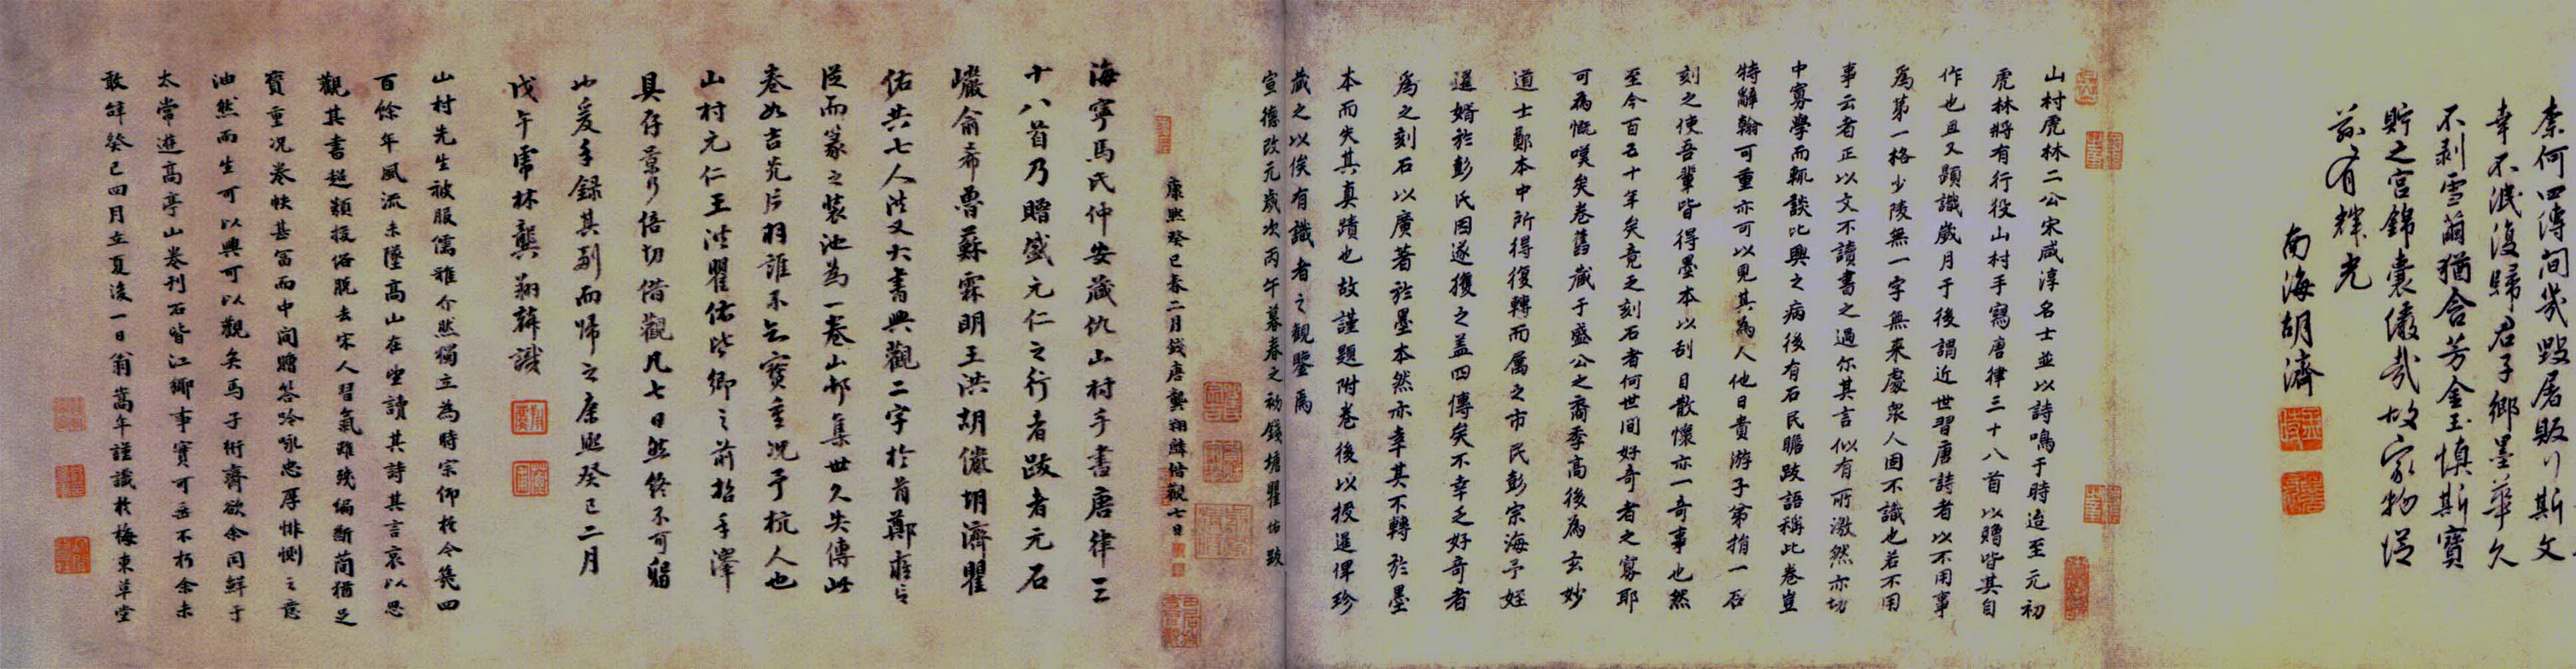 柰何四傳間幾毀屠販斯文
幸不泯復歸君子鄉墨華久
不剥雪繭猶含芳金玉慎斯寶
貯之宫錦囊儼哉故家物
茲有輝光
南海胡濟
山村虎林二公宋咸淳名士並以詩鳴于時迨至元初
虎林將有行役山村手寫唐律三十八首以贈皆其自
作也且又題識歲月于後謂近世習唐詩者以不用事
為第一格少陵無一字無來處衆人固不識也若不用
事云者正以文不讀書之過尔其言似有所激然亦切
中寡學而輒談比興之病後有石民瞻跋語稱此卷豈
特辭翰可重亦可以見其為人他日貴游子弟捐一石
刻之使吾輩皆得墨本以刮目散懷亦一奇事也然
至今百五十年矣竟乏刻石者何世间好奇者之寡耶
可為慨嘆矣卷舊藏于盛公之裔季高後為玄妙
道士鄭本中所得復轉而属之市民彭宗海予姪
暹婿於彭氏因遂獲之盖四傳矣不幸乏好奇者
為之刻石以廣著於墨本然亦幸其不轉於墨
本而失其真蹟也故謹題附卷後以授暹俾珍
藏之以俟有識者之觀鑒焉
宣德改元歲次丙午暮春之初錢塘瞿佑跋
康熙癸巳春二月錢唐龔翔麟借觀七日
海寧馬氏仲安藏仇山村手書唐律三
十八首乃贈盛元仁之行者跋者元石
巖俞希魯蘇霖明王洪胡儼胡濟瞿
佑共七人洪又大書興觀二字於首鄭雍言
從而篆之裝池為一卷山邨集世久失傳此
卷如吉光片羽誰不知寶重況予杭人也
山村元仁王洪瞿佑皆鄉之前招手澤
具存景仰倍切借觀凡七日然終不可留
也爰手録其副而歸之康熙癸巳二月
戊午虎林龔翔麟識
山村先生被服儒雅介然獨立為時宗仰於今幾四
百餘年風流未墜高山在望讀其詩其言哀以思
觀其書超類拔俗脱去宋人習氣雖殘編斷蕳猶足
寶重况卷帙甚富而中间贈答吟咏忠厚悱恻之意
油然而生可以興可以觀矣馬子衎齋欲余同鮮于
太常遊高亭山卷刊石皆江鄉事實可垂不朽余未
敢辞癸巳四月立夏後一日翁嵩年謹識於梅東草堂